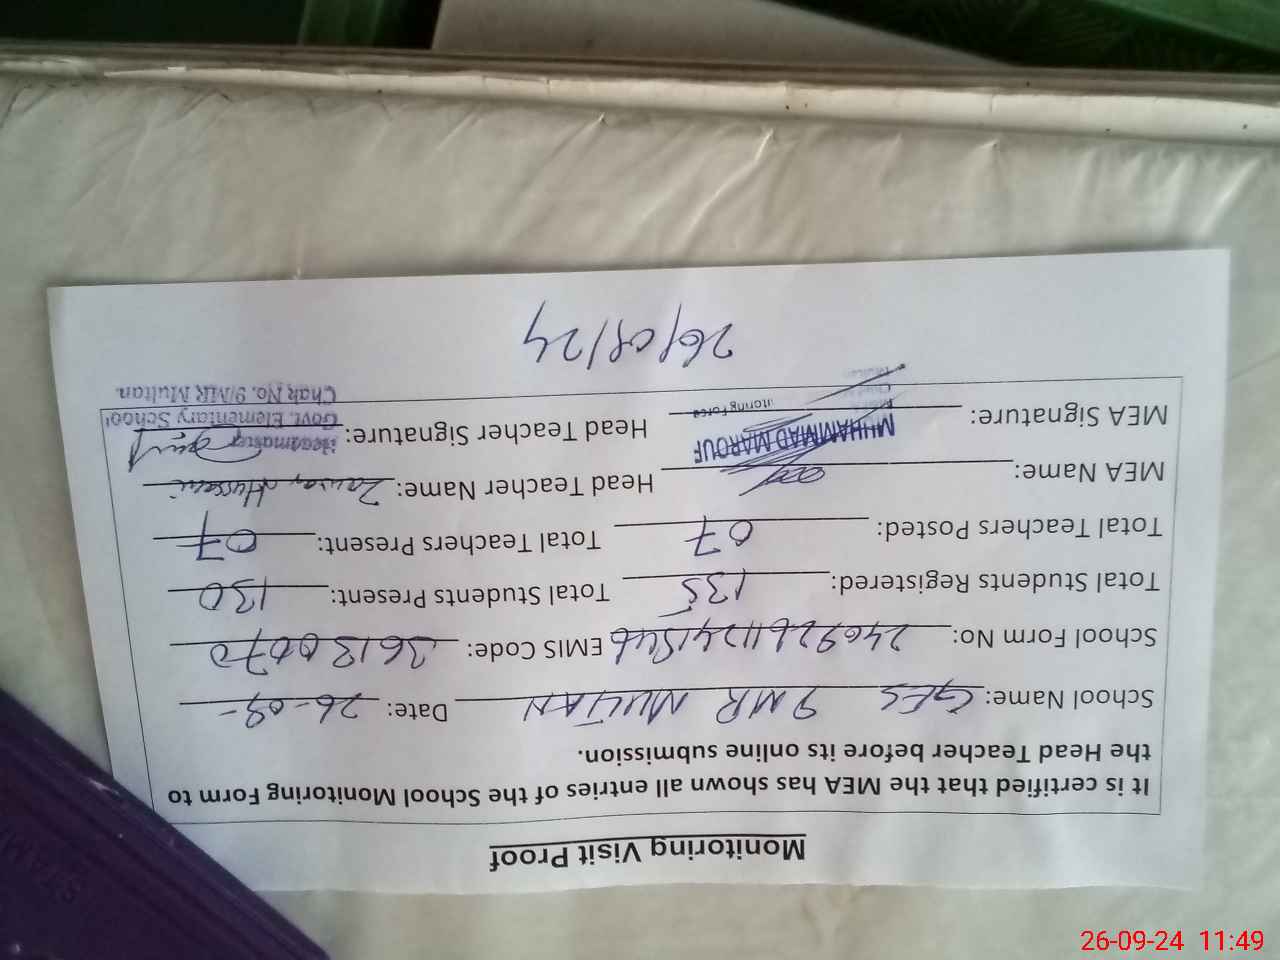 Monitoring Visit Proof
It is certified that the MEA has shown all entries of the School Monitoring Form to
the Head Teacher before its online submission.
School Name: GES 9 MR MULTAN Date: 26-09-
School Form No: EMIS Code: 36130070
Total Students Registered: 135 Total Students Present: 130
Total Teachers Posted: 07 Total Teachers Present: 07
MEA Name: Head Teacher Name: Hussain
MUHAMMAD MAROUF
MEA Signature: Head Teacher Signature:
itoring Force
Headmaster
Govt. Elementary School
Chak No. 9/MR Multan.
26/09/24
26-09-24 11:49